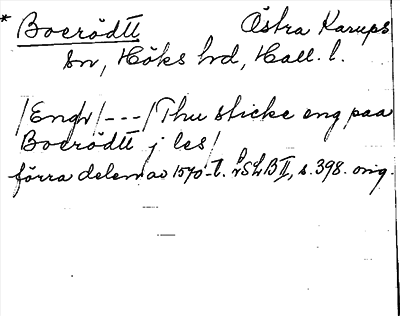 * Boerödtt Östra Karups
sn, Höks hd, Hall. l.
/Engh/---/Thu sticke eng paa
Boerödtt j les/
förra delen av 1570-t. hSLB II, s. 398. orig.